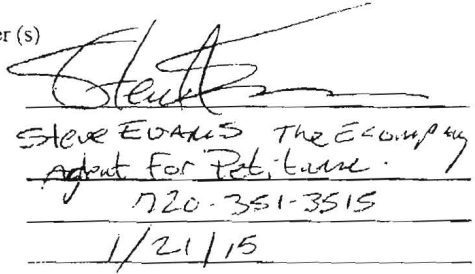 er (s)
Steve Evans The Ecompany
Agent for Petitioner.
720-351-3515
1/21/15